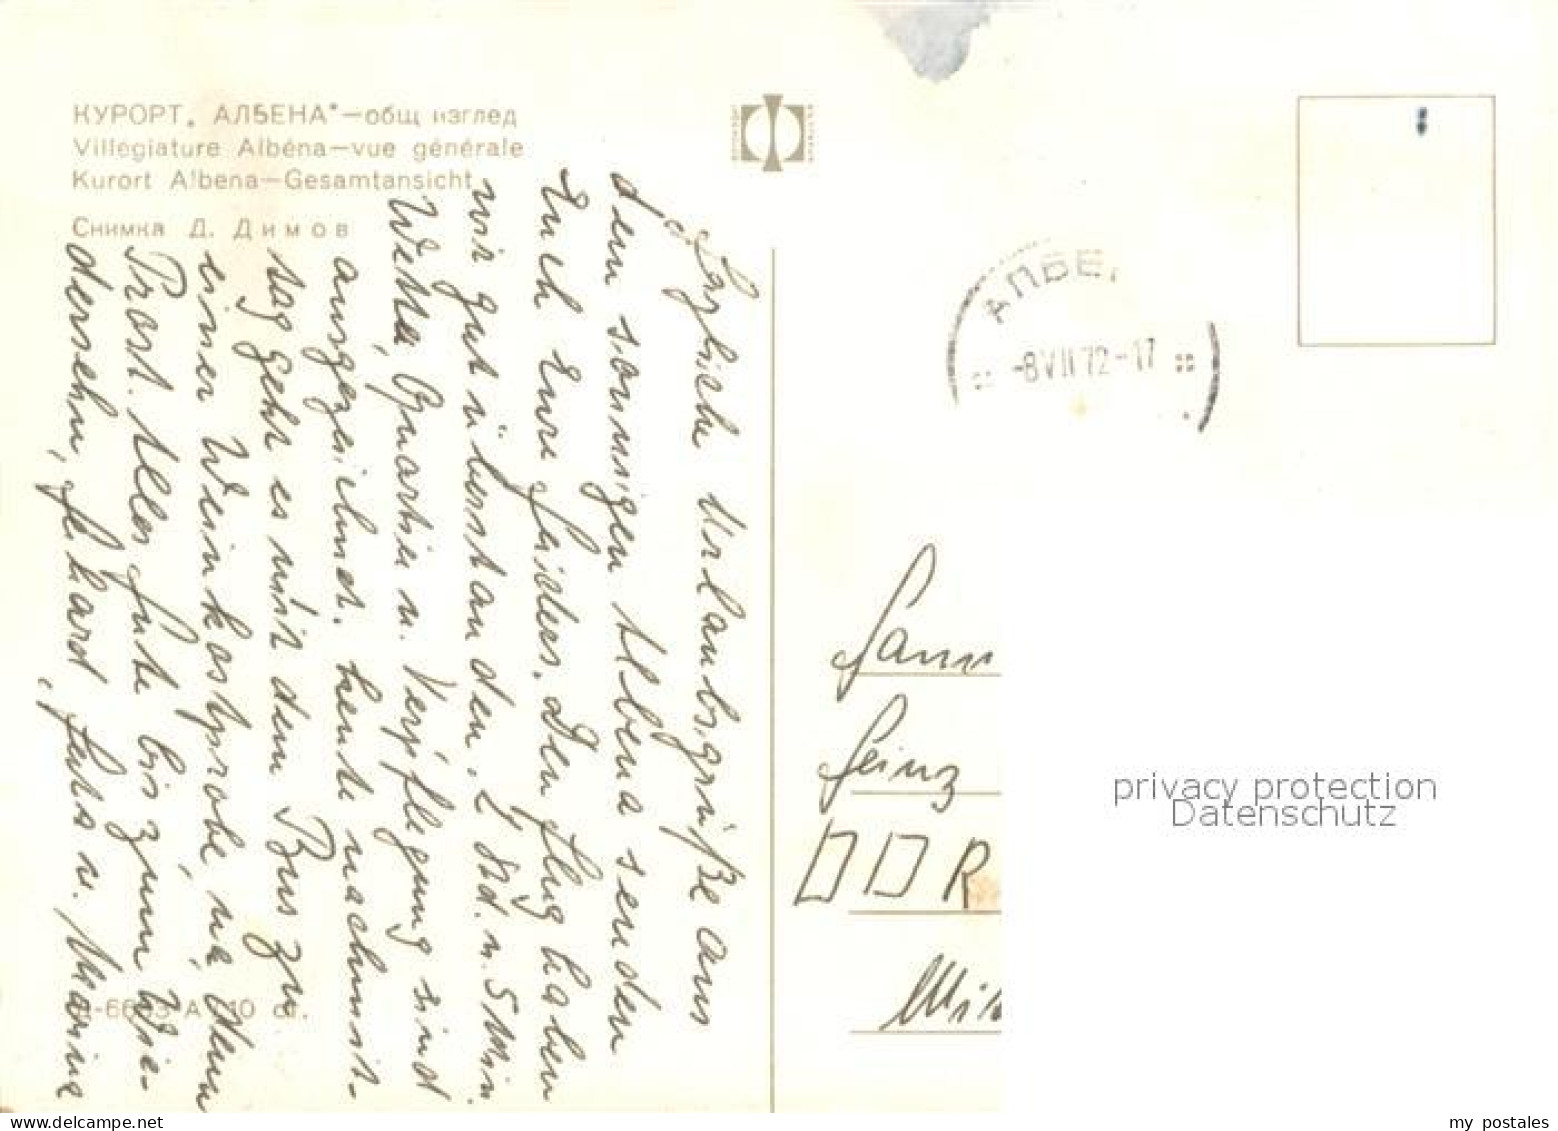 КУРОРТ „АЛБЕНА“—общ изглед
Villégiature Albéna—vue générale
Kurort Albena—Gesamtansicht
Снимка Д. Димов
Herzliche Urlaubsgrüße aus
dem sonnigen Albena senden
Euch Eure
Den Flug haben
wir gut überstanden. 2 Std. u. 5 Min.
Wetter, Quartier u. Verpflegung sind
ausgezeichnet. Heute nachmit-
tag geht es mit dem Bus zu
einer Weinkostprobe, na, denn
Prost. Alles Gute bis zum Wie-
dersehn, Gerhard, u. Marina
10 ст.
АЛБЕ
-8 VII 72-17
Heinz
DDR
privacy protection
Datenschutz
my postales